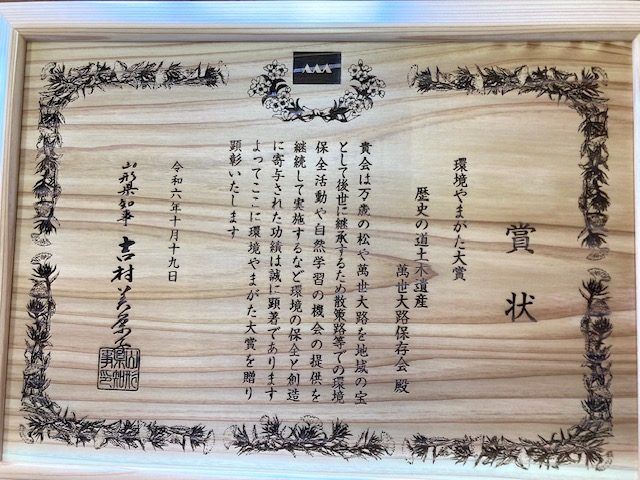 賞状
環境やまがた大賞
歴史の道土木遺産
萬世大路保存会 殿
貴会は万世の松や萬世大路を地域の宝
として後世に継承するため散策路等での環境
保全活動や自然学習の機会の提供を
継続して実施するなど環境の保全と創造
に寄与された功績は誠に顕著であります
よってここに環境やまがた大賞を贈り
顕彰いたします
令和六年十月十九日
山形県知事 吉村美栄子